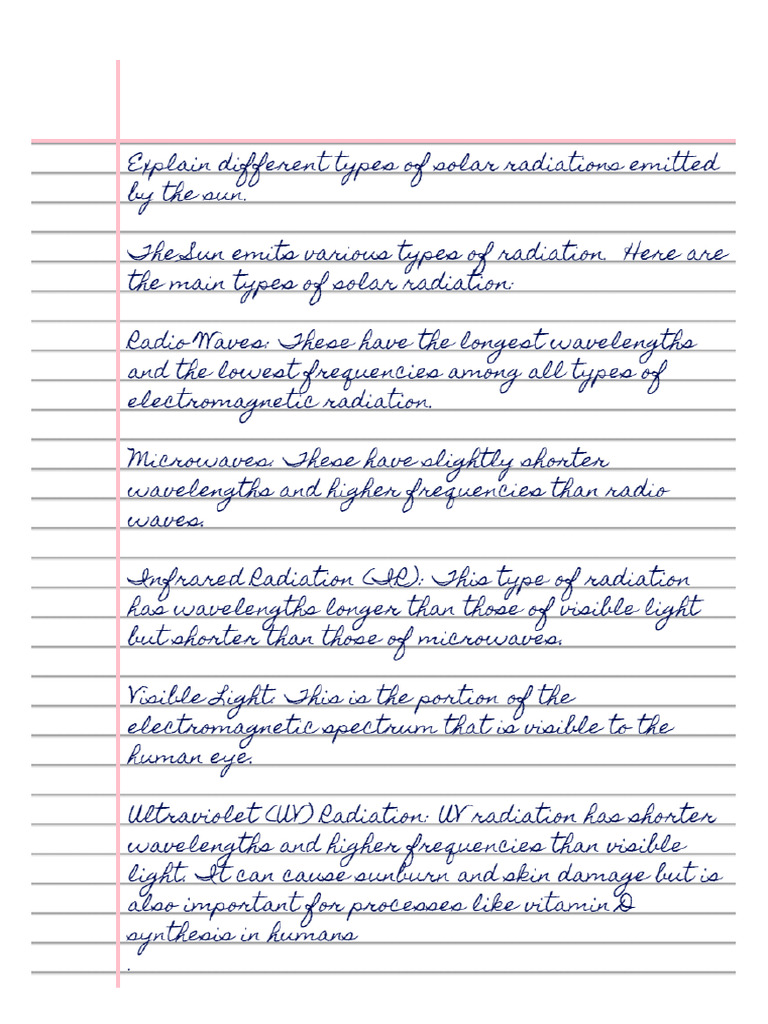 Explain different types of solar radiations emitted
by the sun.
The Sun emits various types of radiation. Here are
the main types of solar radiation:
Radio Waves: These have the longest wavelengths
and the lowest frequencies among all types of
electromagnetic radiation.
Microwaves: These have slightly shorter
wavelengths and higher frequencies than radio
waves.
Infrared Radiation (IR): This type of radiation
has wavelengths longer than those of visible light
but shorter than those of microwaves.
Visible Light: This is the portion of the
electromagnetic spectrum that is visible to the
human eye.
Ultraviolet (UV) Radiation: UV radiation has shorter
wavelengths and higher frequencies than visible
light. It can cause sunburn and skin damage but is
also important for processes like vitamin D
synthesis in humans
.